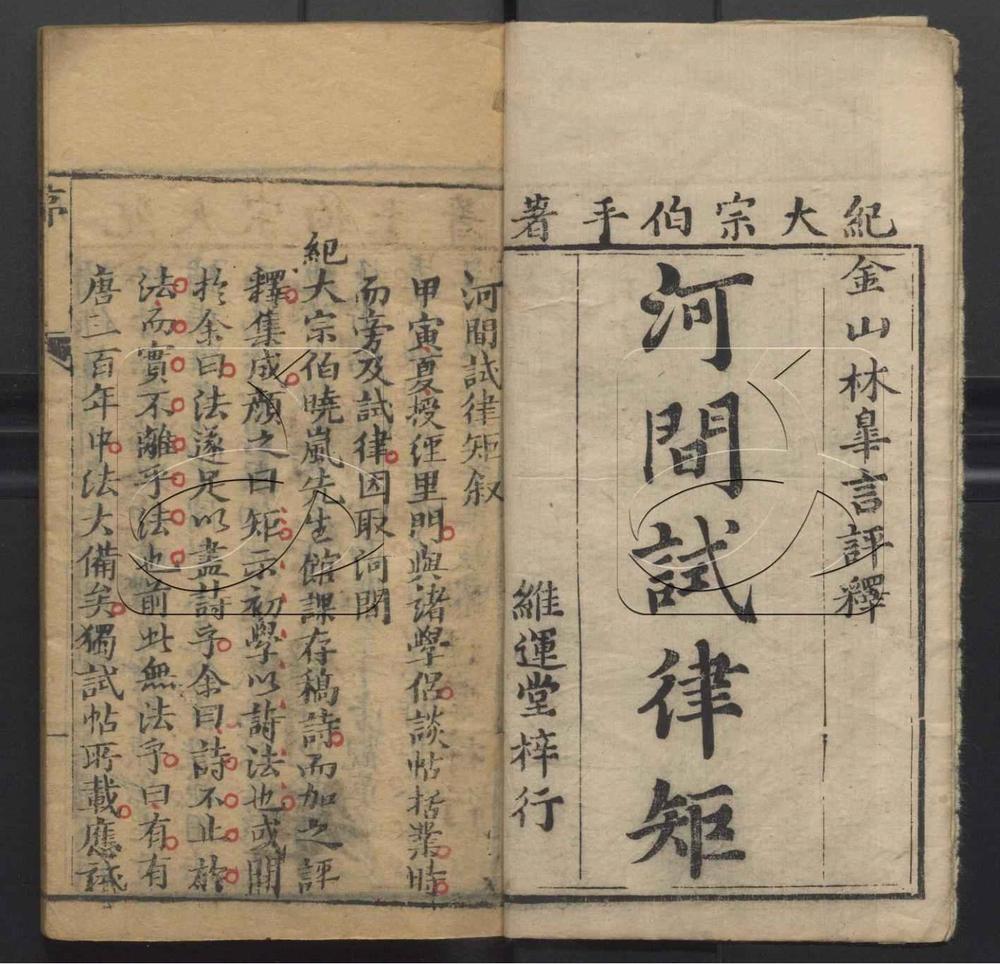 紀大宗伯手著
金山林臯言評釋
河間試律矩
維運堂梓行
河間試律矩叙
甲寅夏授經里門與諸學侶談帖括業時
而旁及試律因取河間
紀大宗伯曉嵐先生館課存稿詩而加之評
釋集成顏之曰矩示初學以詩法也或聞
於余曰法遂足以盡詩乎余曰詩不止於
法而實不離乎法也前此無法乎曰有有
唐三百年中法大備矣獨試帖所載應試
序